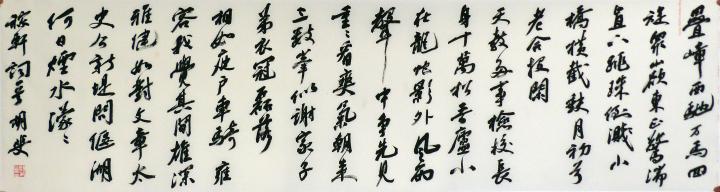 疊嶂西馳万馬回
旋眾山欲東正驚湍
直下跳珠倒濺小
橋橫截缺月初弓
老合投閒
天教多事檢校長
身十萬松吾廬小
在龍蛇影外風雨
聲中爭先見
重重看爽氣朝來
三數峯似謝家子
弟衣冠磊落
相如庭戶車騎雍
容我覺其間雄深
雅健如對文章太
史公新堤問偃湖
何日煙水濛々
稼軒詞 胡